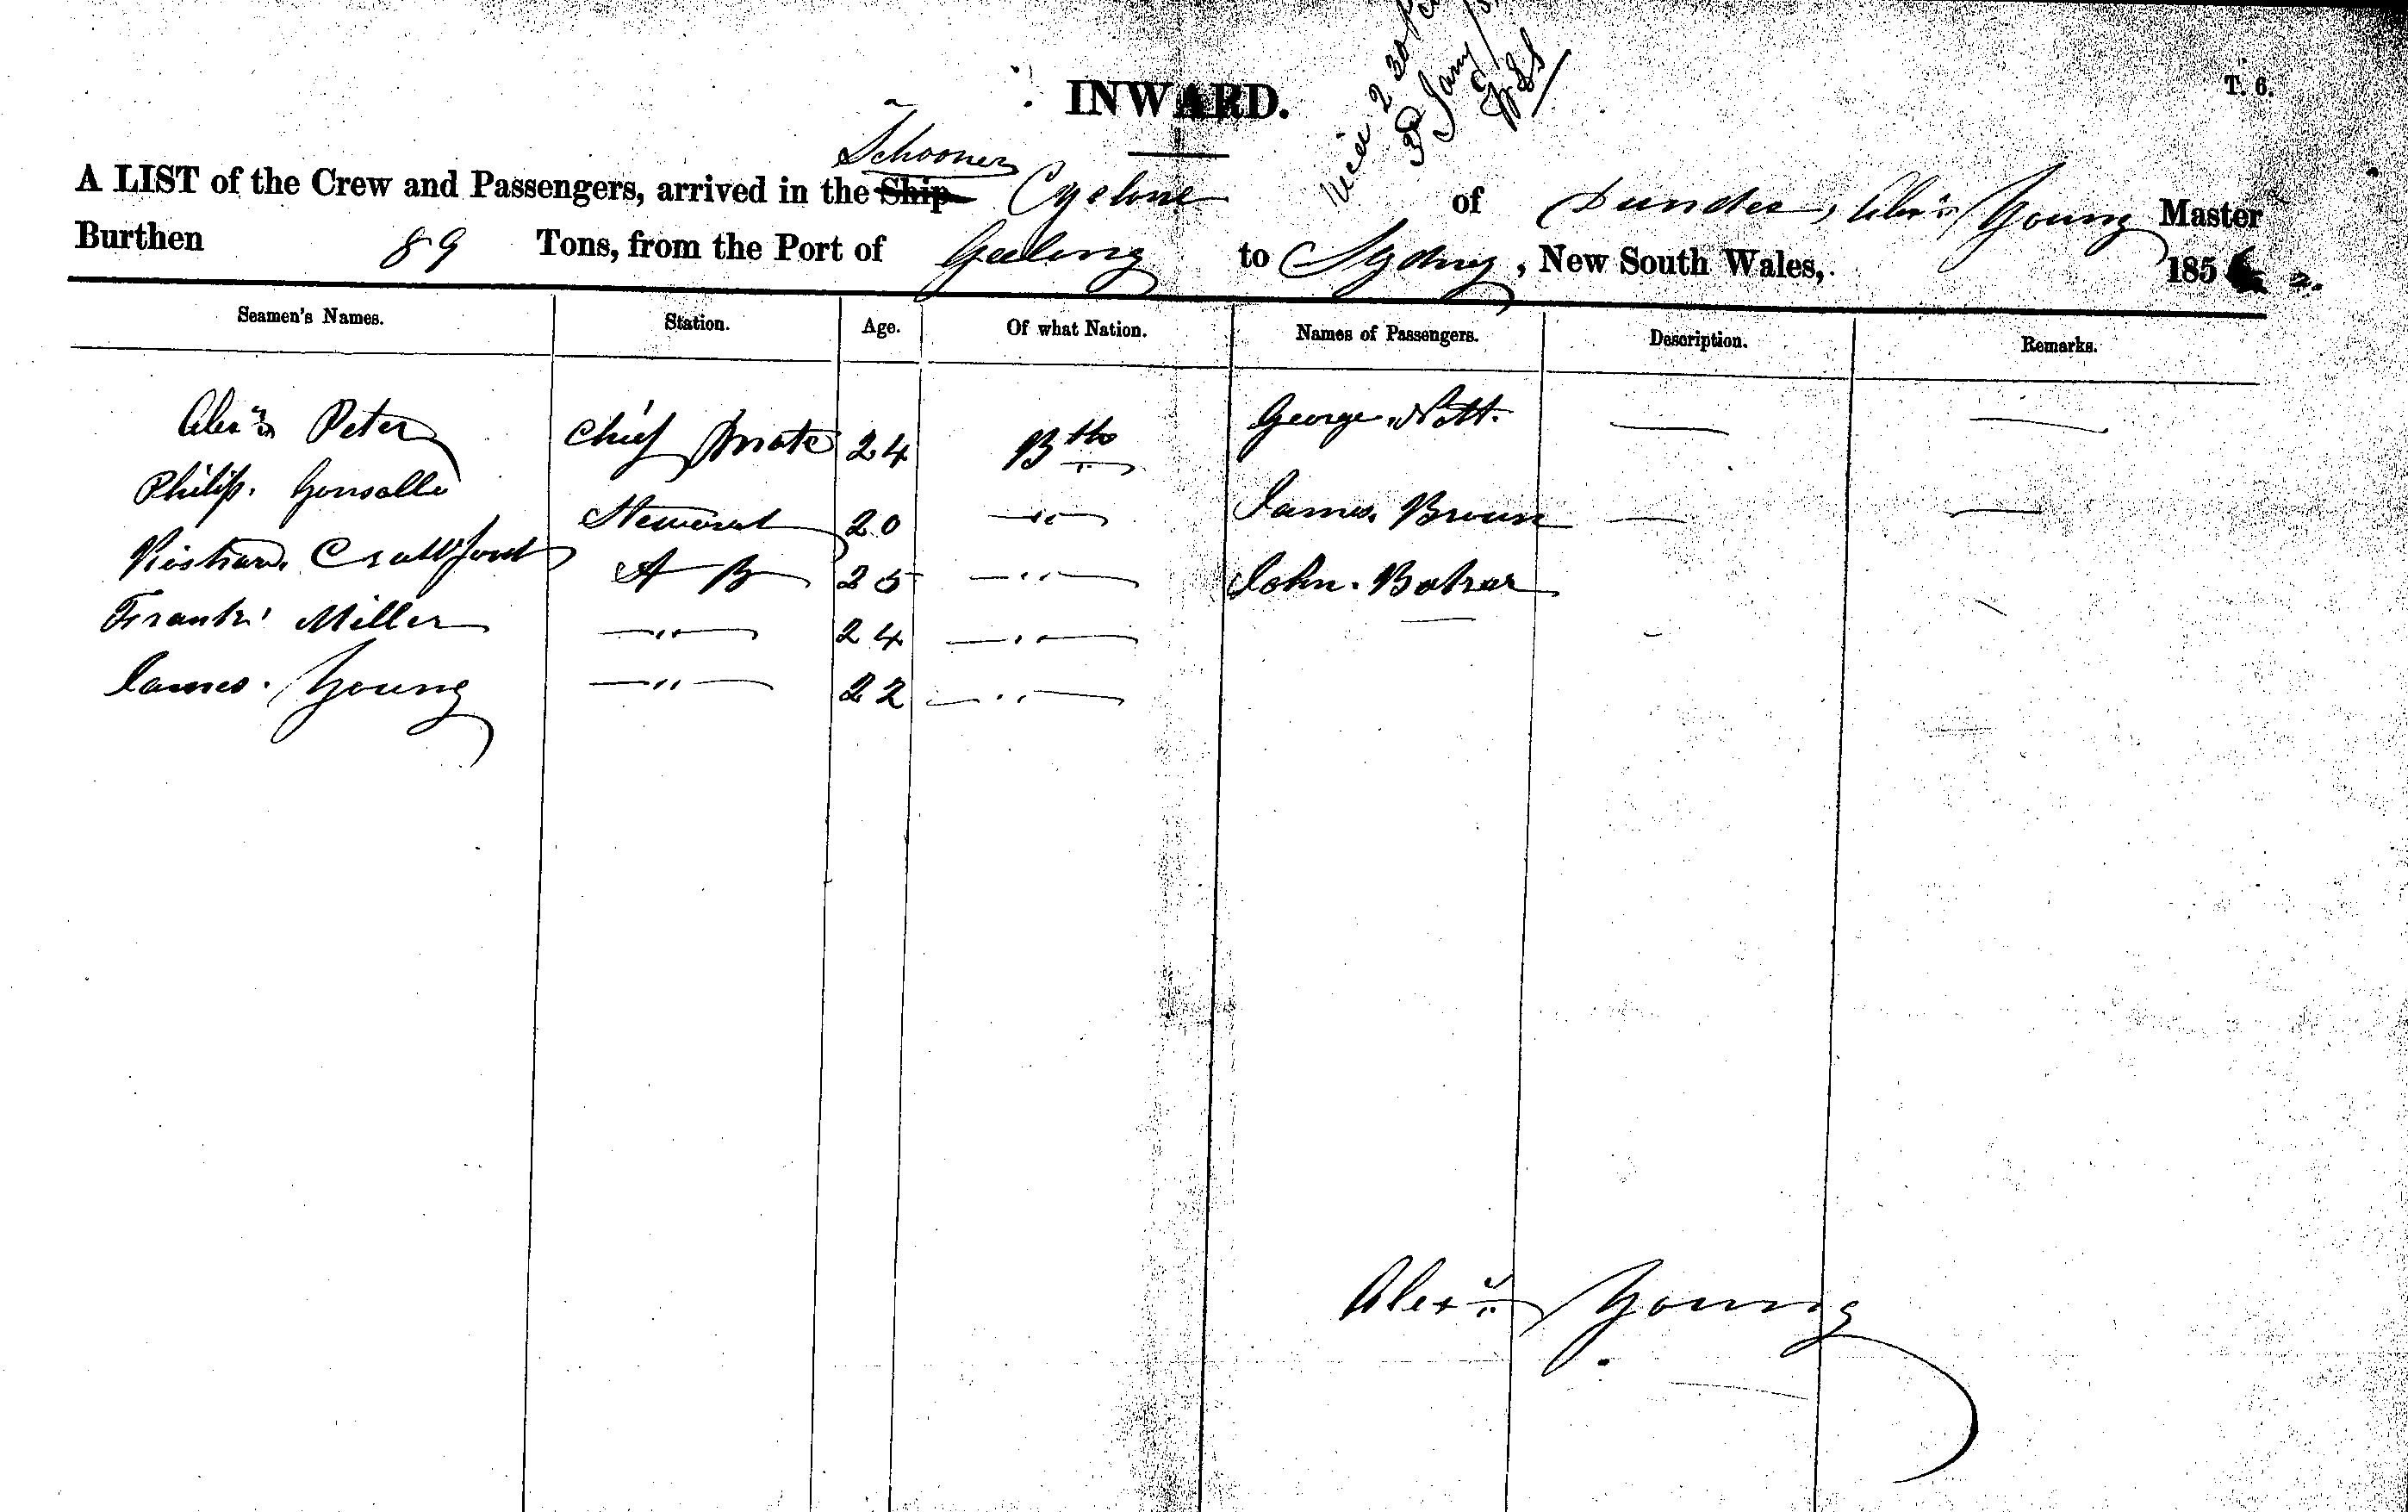 INWARD.
T. 6.
3d Jany
Schooner
A LIST of the Crew and Passengers, arrived in the Ship Cyclone of Dundee, Alexr Young Master
Burthen 89 Tons, from the Port of Geelong to Sydney, New South Wales, 185
Seamen's Names. Station. Age. Of what Nation. Names of Passengers. Description. Remarks.
Alexr Peter Chief Mate 24 Bth George Nott.
Philip. Gonsalle Steward 20 — " — James Broun — —
Richard Crawford A B 25 — " — John. Botrar
Frank Miller — " — 24 — " —
James. Young — " — 22 — " —
Alexr Young